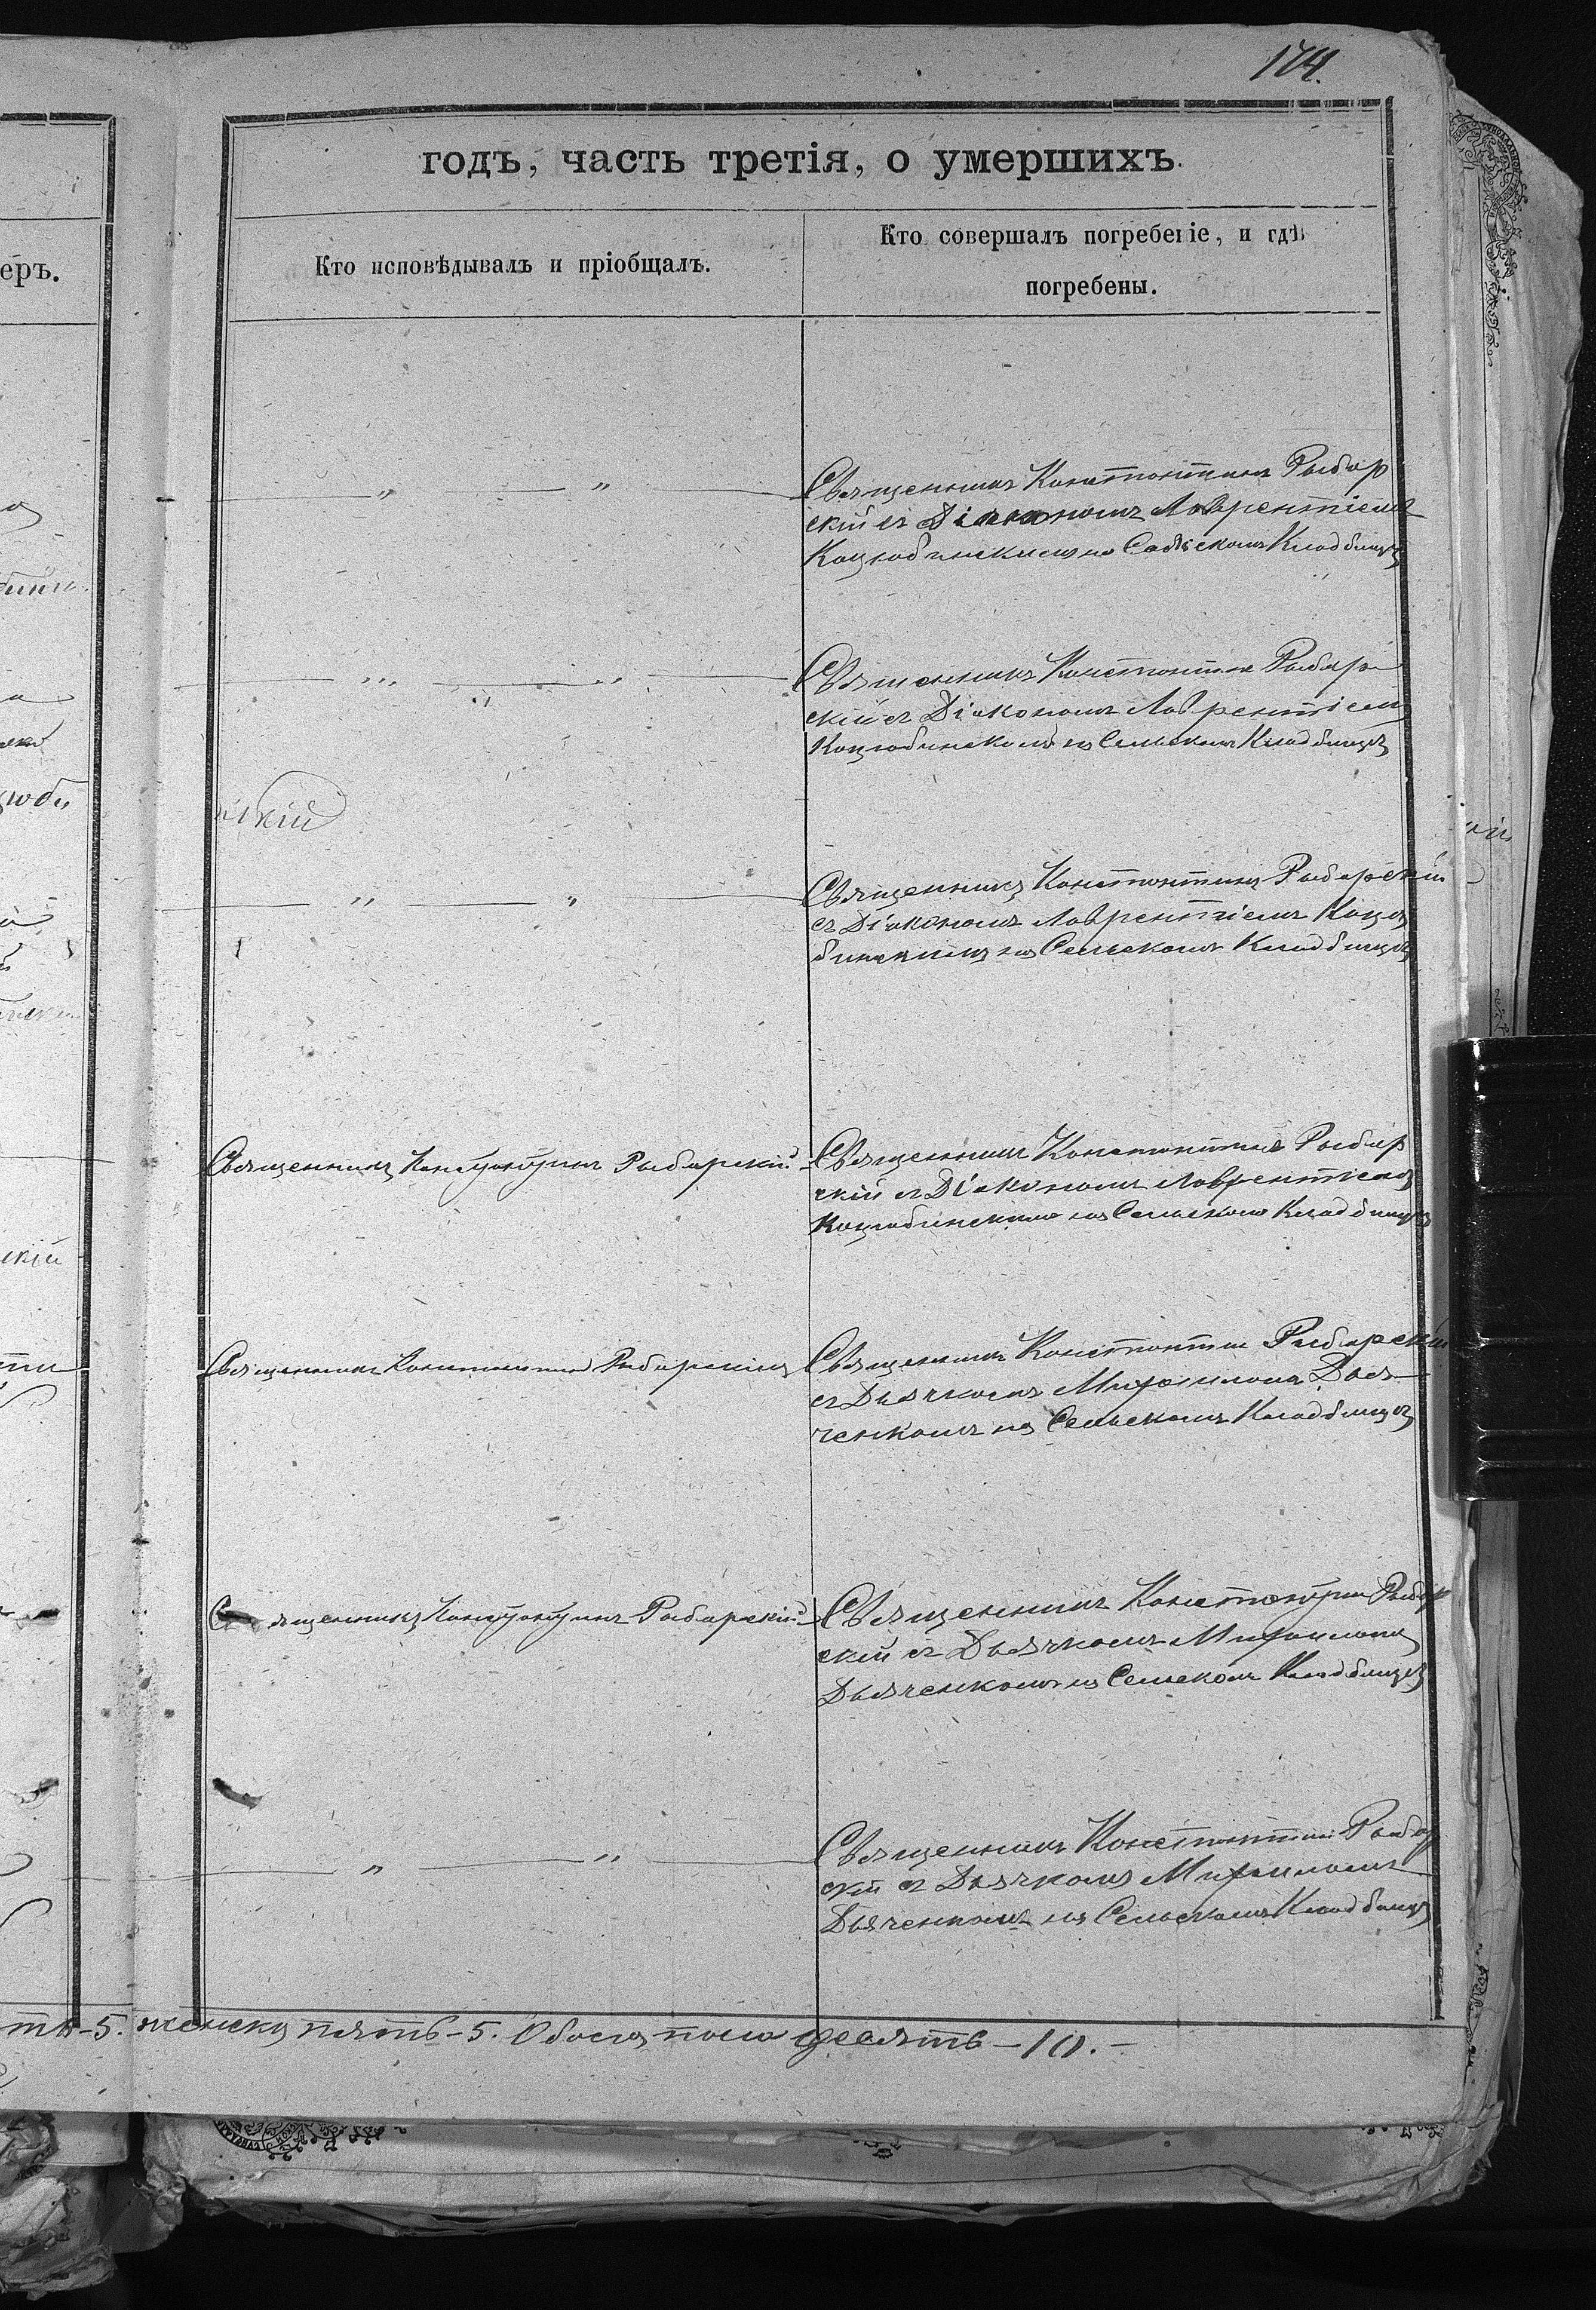 174.
годъ, часть третія, о умершихъ.
еръ.
Кто исповѣдывалъ и пріобщалъ.
Кто совершалъ погребеніе, и гдѣ
погребены.
— " — " —
Священникъ Константинъ Рыбар
скій съ Діакономъ Лаврентіемъ
Коцюбинскимъ на Сельскомъ Кладбищѣ
— " — " —
Священникъ Константинъ Рыбар
скій съ Діакономъ Лаврентіемъ
Коцюбинскимъ на Сельскомъ Кладбищѣ
цюби
нскій
— " — " —
Священникъ Константинъ Рыбарскій
съ Діакономъ Лаврентіемъ Коцю
бинскимъ на Сельскомъ Кладбищѣ
Священникъ Константинъ Рыбарскій
Священникъ Константинъ Рыбар
скій съ Діакономъ Лаврентіемъ
Коцюбинскимъ на Сельскомъ Кладбищѣ
скій
Священникъ Константинъ Рыбарскій
Священникъ Константинъ Рыбарскій
съ Дьячкомъ Михаиломъ Дья
ченкомъ на Сельскомъ Кладбищѣ
Священникъ Константинъ Рыбарскій
Священникъ Константинъ Рыбар
скій съ Дьячкомъ Михаиломъ
Дьяченкомъ на Сельскомъ Кладбищѣ
— " — " —
Священникъ Константинъ Рыбар
скій съ Дьячкомъ Михаиломъ
Дьяченкомъ на Сельскомъ Кладбищѣ
ть-5. женска пять-5. Обоего пола десять-10.-